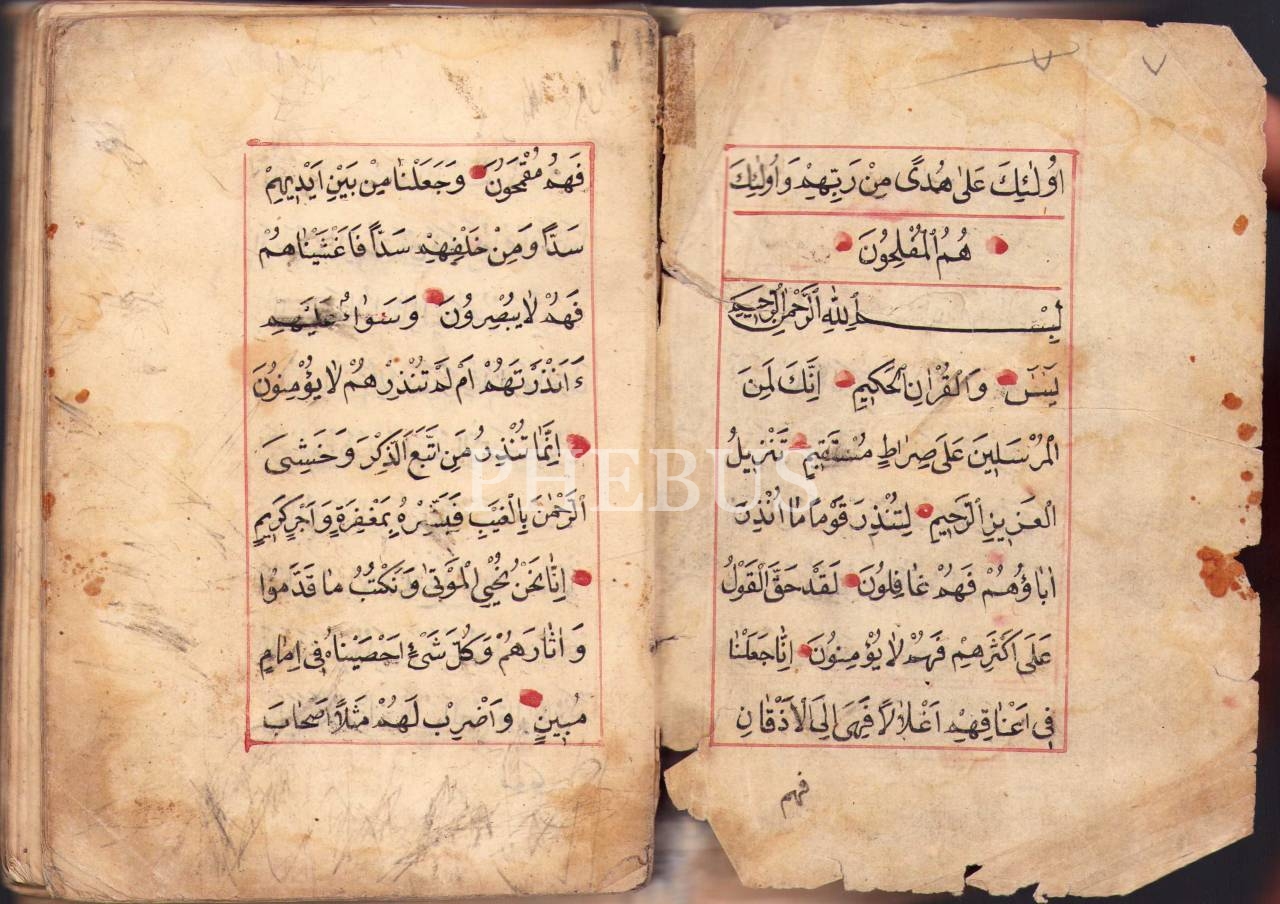 اُولٰئِكَ عَلٰى هُدًى مِنْ رَبِّهِمْ وَاُولٰئِكَ
هُمُ الْمُفْلِحُونَ
بِسْمِ اللّٰهِ الرَّحْمٰنِ الرَّحِيمِ
يٰسٓ وَالْقُرْاٰنِ الْحَكِيمِ اِنَّكَ لَمِنَ
الْمُرْسَلِينَ عَلٰى صِرَاطٍ مُسْتَقِيمٍ تَنْزِيلُ
الْعَزِيزِ الرَّحِيمِ لِتُنْذِرَ قَوْمًا مَا اُنْذِرَ
اٰبَاؤُهُمْ فَهُمْ غَافِلُونَ لَقَدْ حَقَّ الْقَوْلُ
عَلٰى اَكْثَرِهِمْ فَهُمْ لَا يُؤْمِنُونَ اِنَّا جَعَلْنَا
فِى اَعْنَاقِهِمْ اَغْلَالًا فَهِىَ اِلَى الْاَذْقَانِ
فهم
فَهُمْ مُقْمَحُونَ وَجَعَلْنَا مِنْ بَيْنِ اَيْدِيهِمْ
سَدًّا وَمِنْ خَلْفِهِمْ سَدًّا فَاَغْشَيْنَاهُمْ
فَهُمْ لَا يُبْصِرُونَ وَسَوَاءٌ عَلَيْهِمْ
ءَاَنْذَرْتَهُمْ اَمْ لَمْ تُنْذِرْهُمْ لَا يُؤْمِنُونَ
اِنَّمَا تُنْذِرُ مَنِ اتَّبَعَ الذِّكْرَ وَخَشِىَ
الرَّحْمٰنَ بِالْغَيْبِ فَبَشِّرْهُ بِمَغْفِرَةٍ وَاَجْرٍ كَرِيمٍ
اِنَّا نَحْنُ نُحْيِى الْمَوْتٰى وَنَكْتُبُ مَا قَدَّمُوا
وَاٰثَارَهُمْ وَكُلَّ شَىْءٍ اَحْصَيْنَاهُ فِى اِمَامٍ
مُبِينٍ وَاضْرِبْ لَهُمْ مَثَلًا اَصْحَابَ
PHEBUS